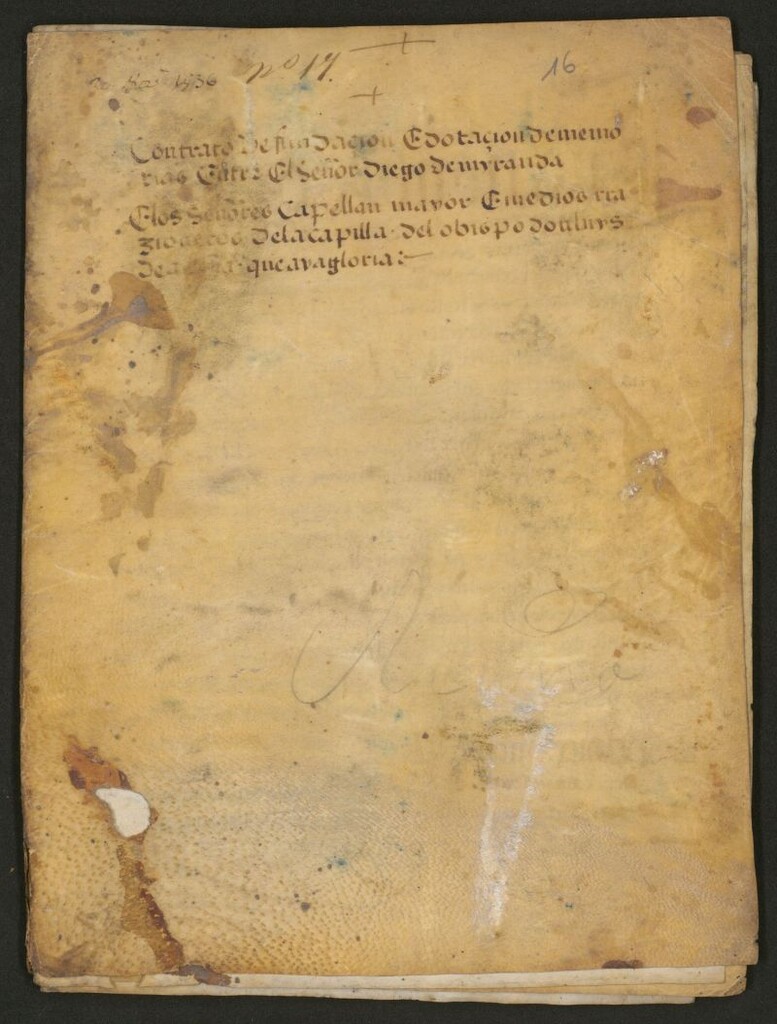 1736 nº 17. 16
Contrato De fundacion E dotaçion de memo
rias Entre El Señor diego de myranda
E los Señores Capellan mayor E medios rra
zioneros De la capilla del obispo don luys
De acuña que aya gloria